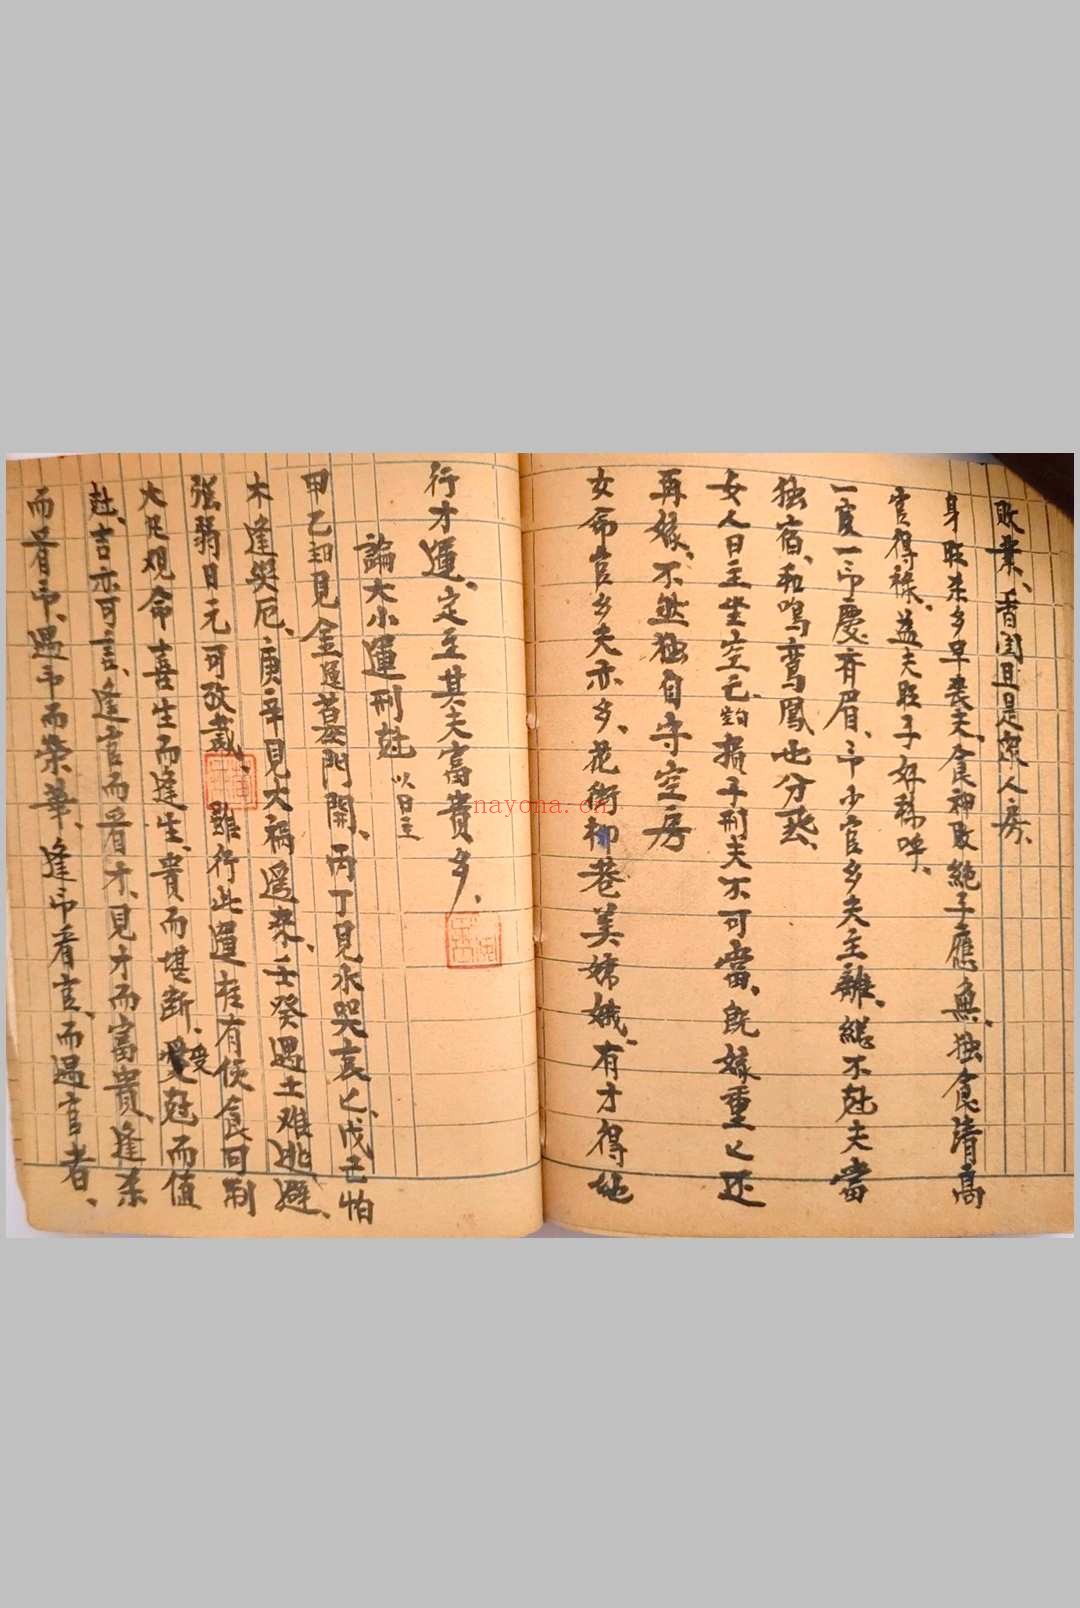 败業、香闺且是寡人房、
身旺杀多早丧夫、食神败絕子應無、独食清高
官得禄、益夫旺子好稀
一官一印慶齐眉、印少官多夫主離、總不尅夫當
独宿、和鳴鸾鳳也分飛、
女人日主坐空亡、損子刑夫不可當、既嫁重〻还
再嫁、不然独自守空房
女命官多夫亦多、花街柳巷美嫦娥、有才得地
行才運、定主其夫富貴多、
論大小運刑尅 以日主
甲乙如見金運墓門開、丙丁見水哭哀〻、戊己怕
木逢災厄、庚辛見火禍為來、壬癸遇土难逃避、
强弱日元可改裁、雖行此運在有傷食可制
大凡观命喜生而逢生、貴而堪断、受尅而值
尅、吉亦可言、逢官而看才、見才而富貴、逢杀
而看印、遇印而荣華、逢印看官、而遇官者、
nayona.cn